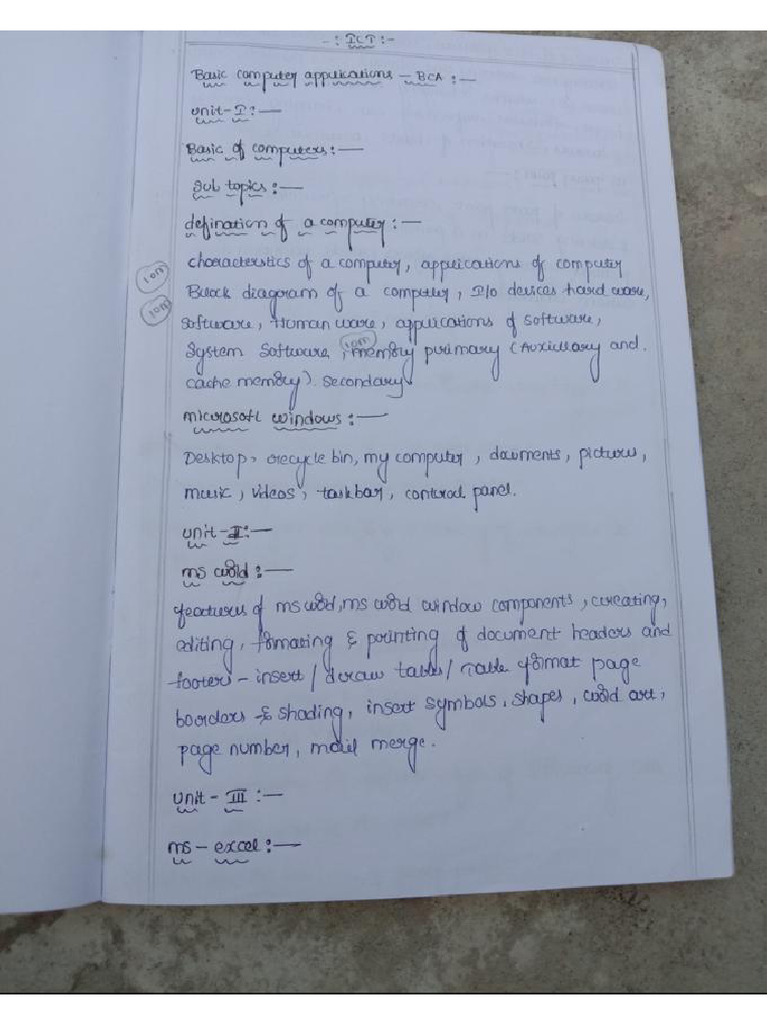 -: ICT :-
Basic computer applications - BCA :-
unit - I :-
Basic of computers :-
Sub topics :-
defination of a computer :-
characteristics of a computer, applications of computer
10M
Block diagram of a computer, I/o devices hard ware,
10M
software, Human ware, applications of software,
System Software, 10M memory primary (Auxicllary and
cache memory). secondary
microsoft windows :-
Desktop, recycle bin, my computer, documents, pictures,
music, videos, taskbar, control panel.
unit - II :-
ms word :-
features of ms word, ms word window components, creating,
editing, formating & printing of document headers and
footers - insert / draw tables / Table format page
boorders & shading, insert symbols, shapes, word art,
page number, mail merge.
unit - III :-
ms - excel :-